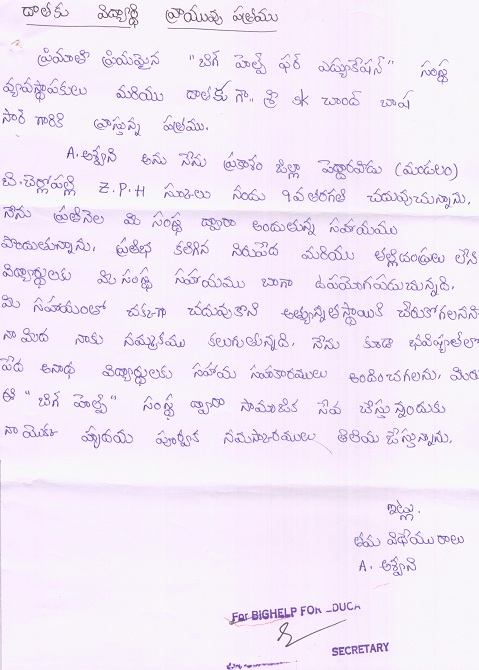 దాతకు విద్యార్థి వ్రాయువు పత్రము
ప్రేమతో ప్రియమైన "బిగ్ హెల్ప్ ఫర్ ఎడ్యుకేషన్" సంస్థ
వ్యవస్థాపకులు మరియు దాతకు గా.. శ్రీ sk చాంద్ బాష
సార్ గారికి వ్రాస్తున్న పత్రము.
A. అశ్విని అను నేను ప్రకాశం జిల్లా పెద్దారవీడు (మండలం)
బి.చెర్లోపల్లి Z.P.H స్కూలు నందు 9వ తరగతి చదువుచున్నాను.
నేను ప్రతినెల మీ సంస్థ ద్వారా అందుతున్న సహాయము
పొందుతున్నాను. ప్రతిభ కలిగిన నిరుపేద మరియు తల్లిదండ్రులు లేని
విద్యార్థులకు మీ సంస్థ సహాయము బాగా ఉపయోగపడుచున్నది.
మీ సహాయంతో చక్కగా చదువుకొని అత్యున్నత స్థాయికి చేరుకోగలనని
నా మీద నాకు నమ్మకము కలుగుతున్నది. నేను కూడా భవిష్యత్‌లో
పేద అనాథ విద్యార్థులకు సహాయ సహకారములు అందించగలను. మీరు
ఈ "బిగ్ హెల్ప్" సంస్థ ద్వారా సామాజిక సేవ చేస్తున్నందుకు
నా యొక్క హృదయ పూర్వక నమస్కారములు తెలియ చేస్తున్నాను.
ఇట్లు.
తమ విధేయురాలు
A. అశ్విని
For BIGHELP FOR EDUCA
SECRETARY